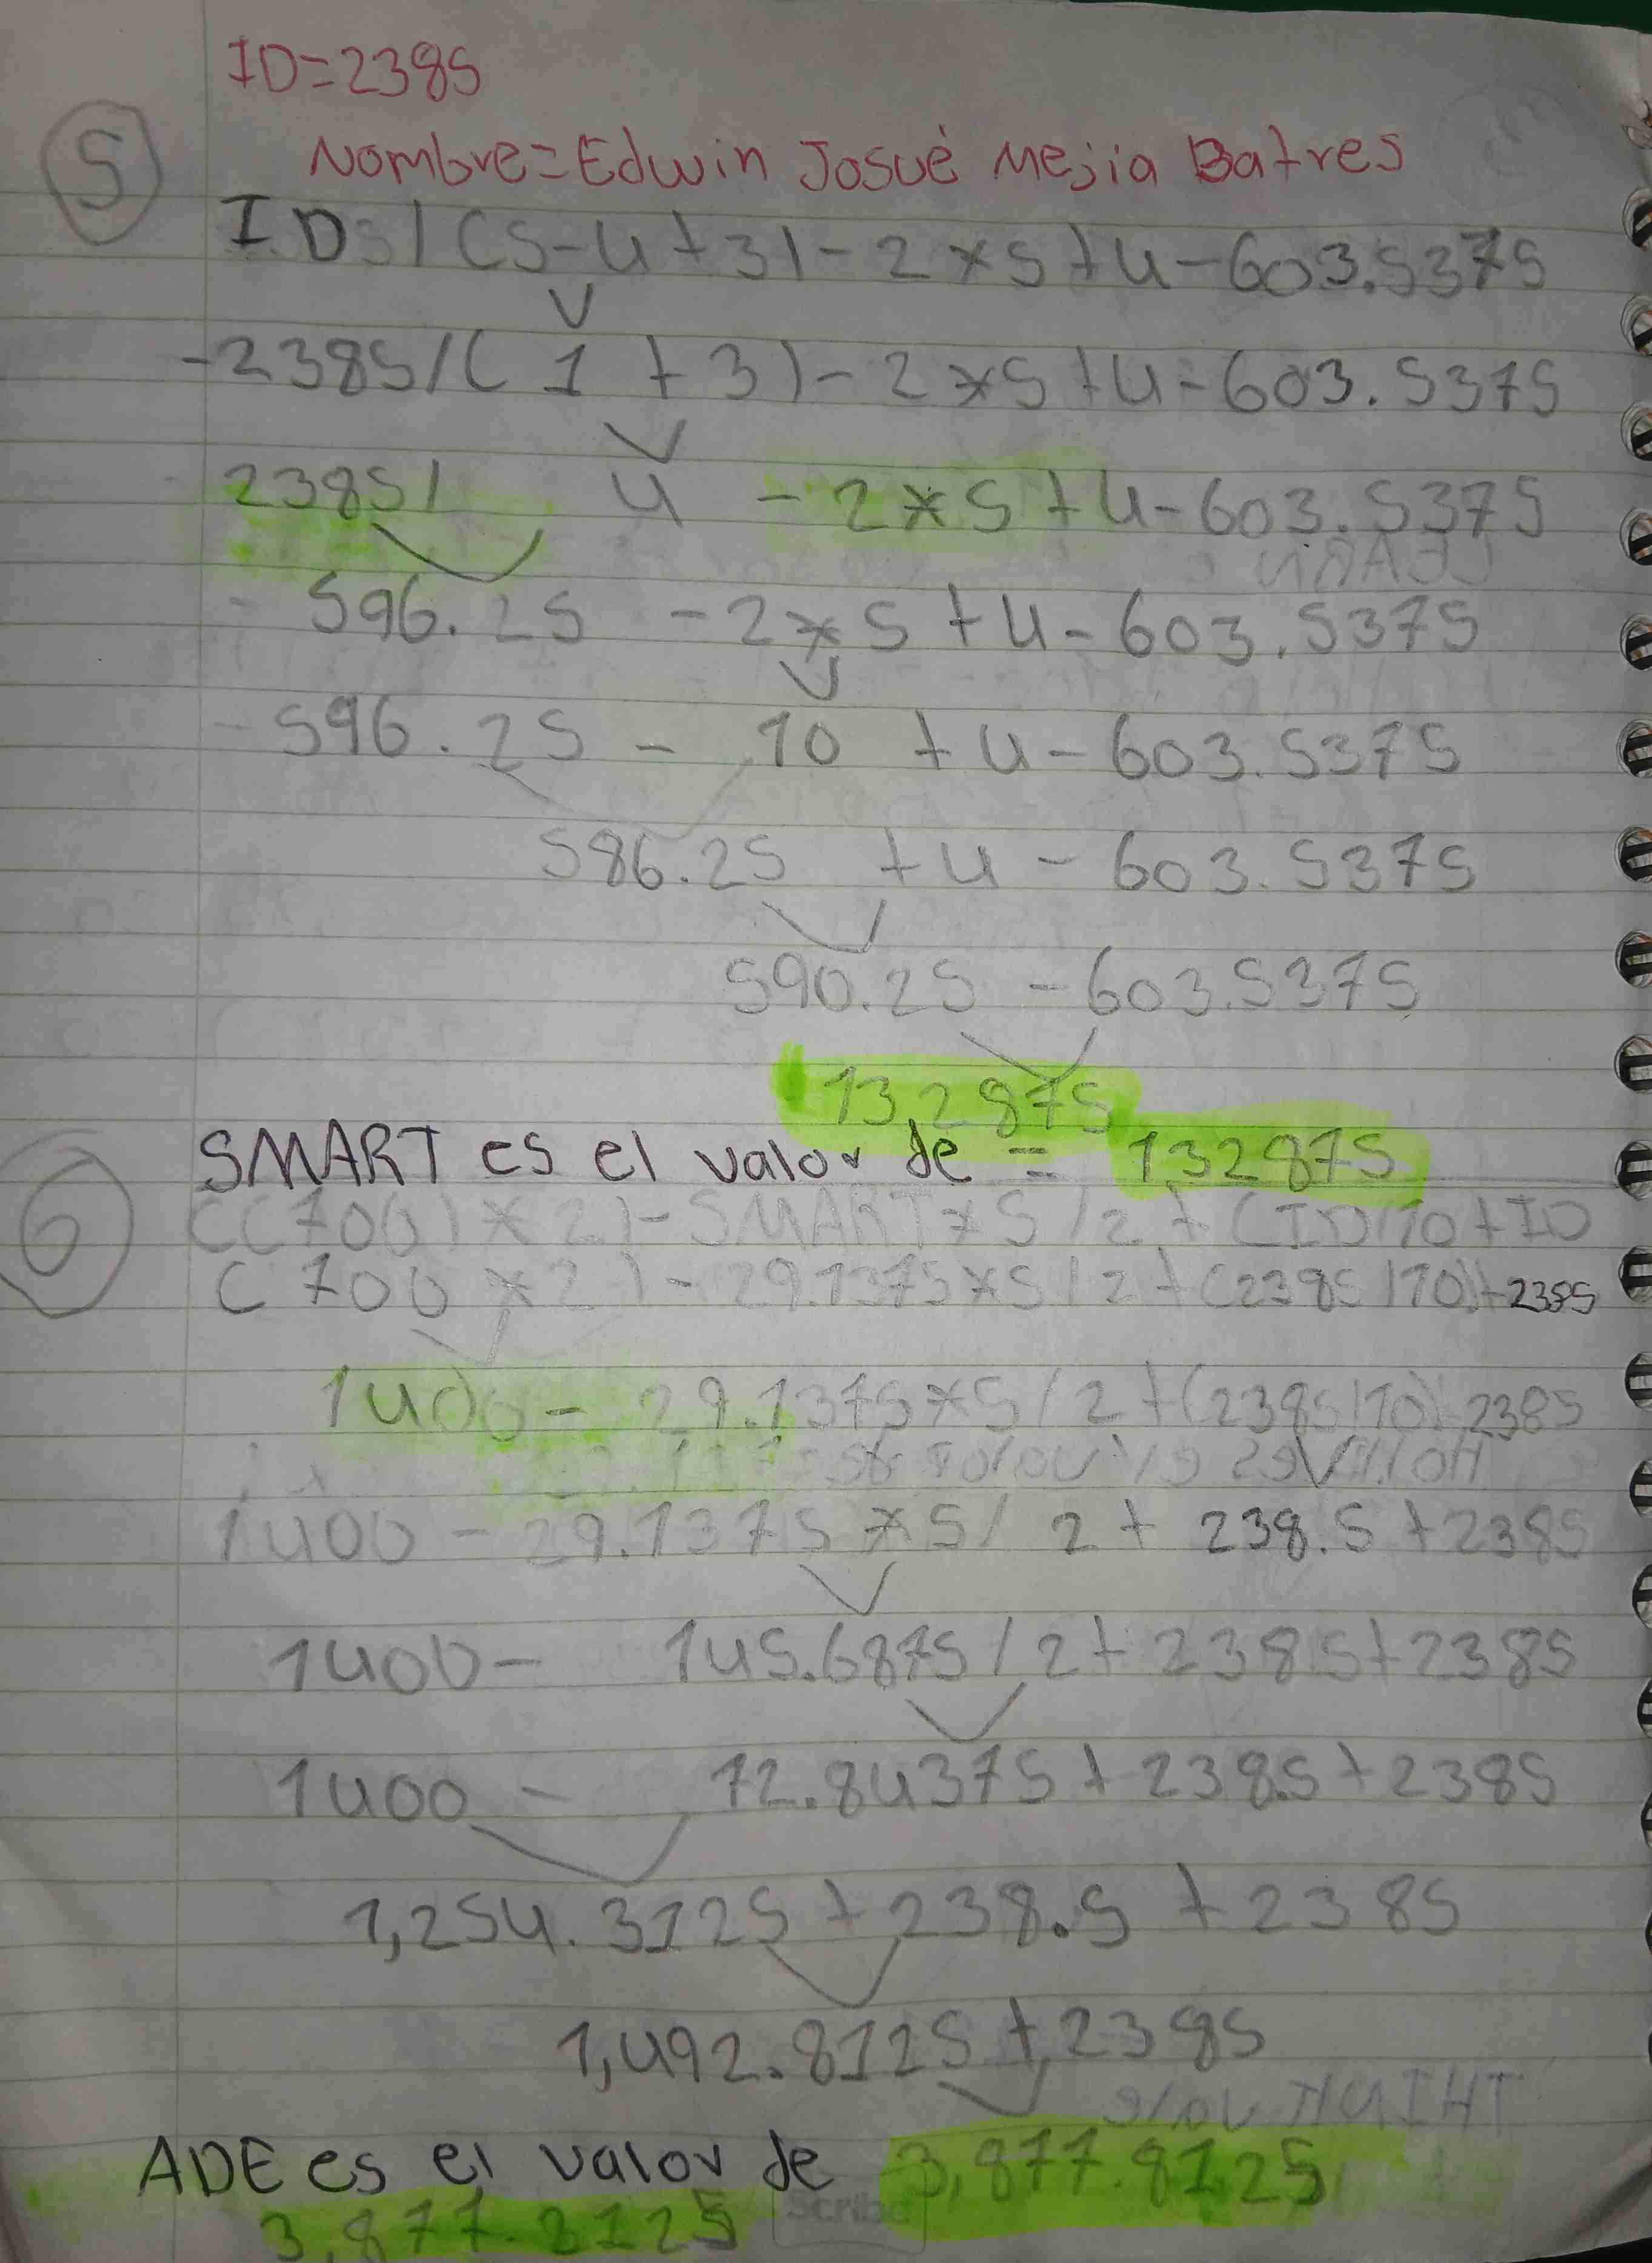 ID=2385
Nombre=Edwin Josué Mejia Batres
5
IDs/(5-4+3)-2*5+4-603.5375
-2385/(1+3)-2*5+4-603.5375
2385/ 4 -2*5+4-603.5375
- 596.25 -2*5+4-603.5375
- 596.25 - 10 +4-603.5375
586.25 +4-603.5375
590.25 -603.5375
132875
SMART es el valor de = 132875
6
((700)*2)-SMART*5/2+(ID/10+ID
(700*2)-29.1375*5/2+(2385/10)+2385
1400-29.1375*5/2+(2385/10)+2385
1400-29.1375*5/2+238.5+2385
1400- 145.6875/2+238.5+2385
1400 - 72.84375+238.5+2385
1,254.3125+238.5+2385
1,492.8125+2385
ADE es el valor de 3,877.8125
3,877.8125
Scribe